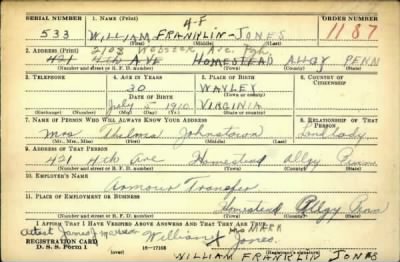 SERIAL NUMBER 1. NAME (Print) 4-F ORDER NUMBER
533 WILLIAM FRANKLIN-JONES 1187
(First) (Middle) (Last)
2. ADDRESS (Print) 2108 Webster Ave. Pgh.
421 4th AVE HOMESTEAD ALLGY PENN
(Number and street or R. F. D. number) (Town) (County) (State)
3. TELEPHONE 4. AGE IN YEARS 5. PLACE OF BIRTH 6. COUNTRY OF CITIZENSHIP
30 WAVLEY
DATE OF BIRTH (Town or county)
July 5 1910 VIRGINIA
(Exchange) (Number) (Mo.) (Day) (Yr.) (State or country)
7. NAME OF PERSON WHO WILL ALWAYS KNOW YOUR ADDRESS 8. RELATIONSHIP OF THAT PERSON
Mrs Thelma Johnstown Landlady
(Mr., Mrs., Miss) (First) (Middle) (Last)
9. ADDRESS OF THAT PERSON
421 4th Ave Homestead Allgy Penn
(Number and street or R. F. D. number) (Town) (County) (State)
10. EMPLOYER'S NAME
Armour Transfer
11. PLACE OF EMPLOYMENT OR BUSINESS
Homestead Allgy Penn
(Number and street or R. F. D. number) (Town) (County) (State)
I AFFIRM THAT I HAVE VERIFIED ABOVE ANSWERS AND THAT THEY ARE TRUE.
Attest James J HIS MARK
REGISTRATION CARD William X Jones.
D. S. S. Form 1 (over) 16-17105 (Registrant's signature)
WILLIAM FRANKLIN JONES